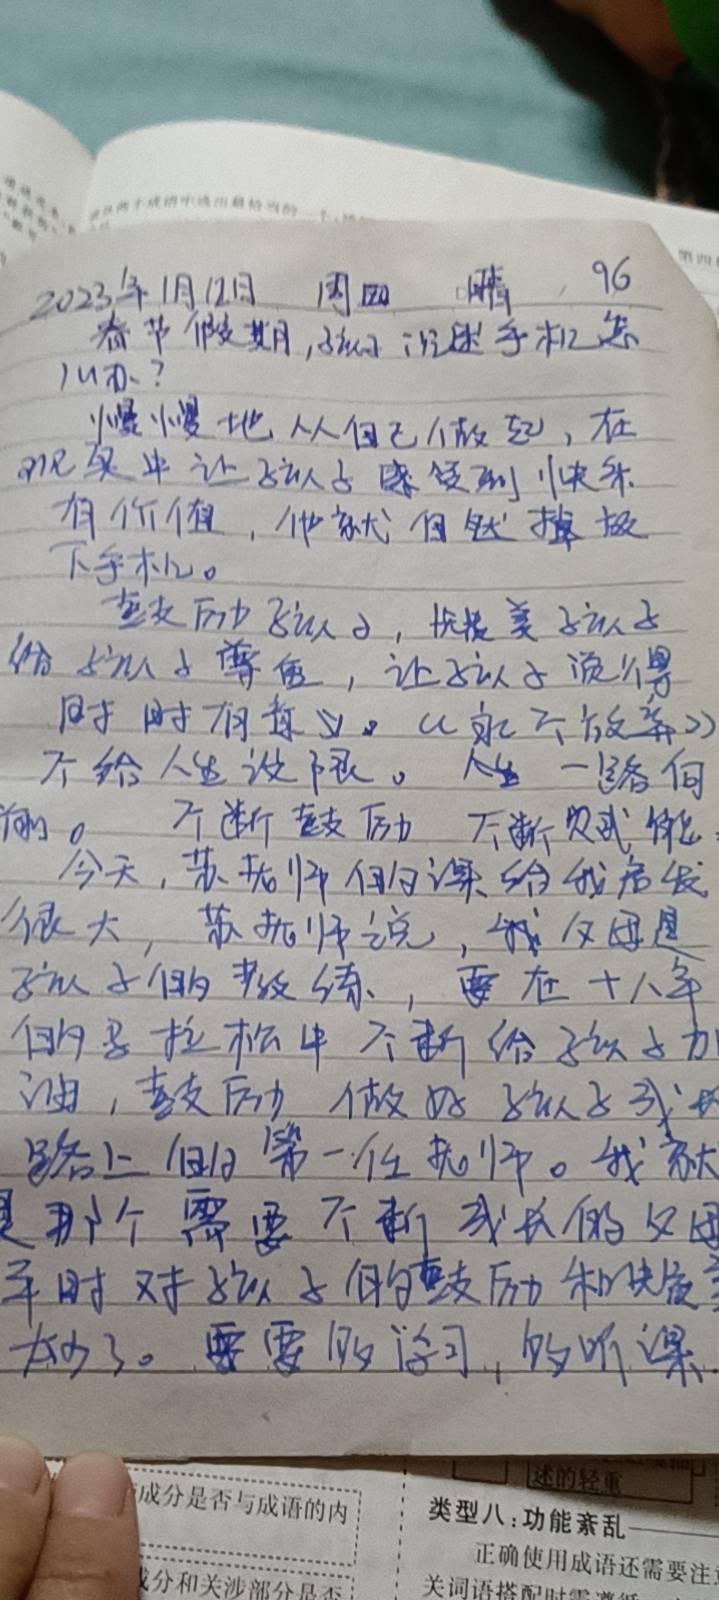 在两个成语中选出最恰当的一个
第四
2023年1月12日 周四 晴 96
春节假期,孩子沉迷手机怎
么办?
慢慢地从自己做起,在
现实中让孩子感受到快乐
有价值,他就自然放
下手机。
鼓励孩子,赞美孩子
给孩子尊重,让孩子觉得
时时有意义。《永不放弃》
不给人生设限。人生一路向
前。不断鼓励 不断赞美
今天,苏老师的课给我启发
很大,苏老师说,我父母是
孩子的教练,要在十八年
的马拉松中不断给孩子加
油,鼓励 做好孩子成长
路上的第一任老师。我就
是那个需要不断成长的父母
平时对孩子的鼓励和
太少了。要要的学习,的听课
成分是否与成语的内
成分和关涉部分是否
述的轻重
类型八:功能紊乱
正确使用成语还需要注
关词语搭配时需遵循